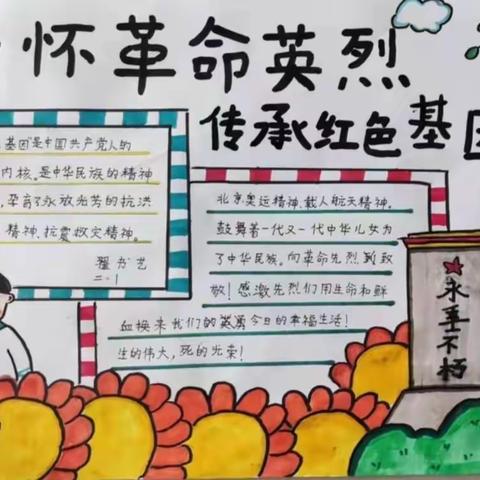 怀革命英烈
传承红色基因
基因"是中国共产党人的
内核。是中华民族的精神
孕育了永放光芒的抗洪
精神、抗震救灾精神。
翟书艺
二.1
北京奥运精神、载人航天精神,
鼓舞着一代又一代中华儿女为
了中华民族。向革命先烈致
敬!感激先烈们用生命和鲜
血换来我们的英勇今日的幸福生活!
生的伟大,死的光荣!
永垂不朽